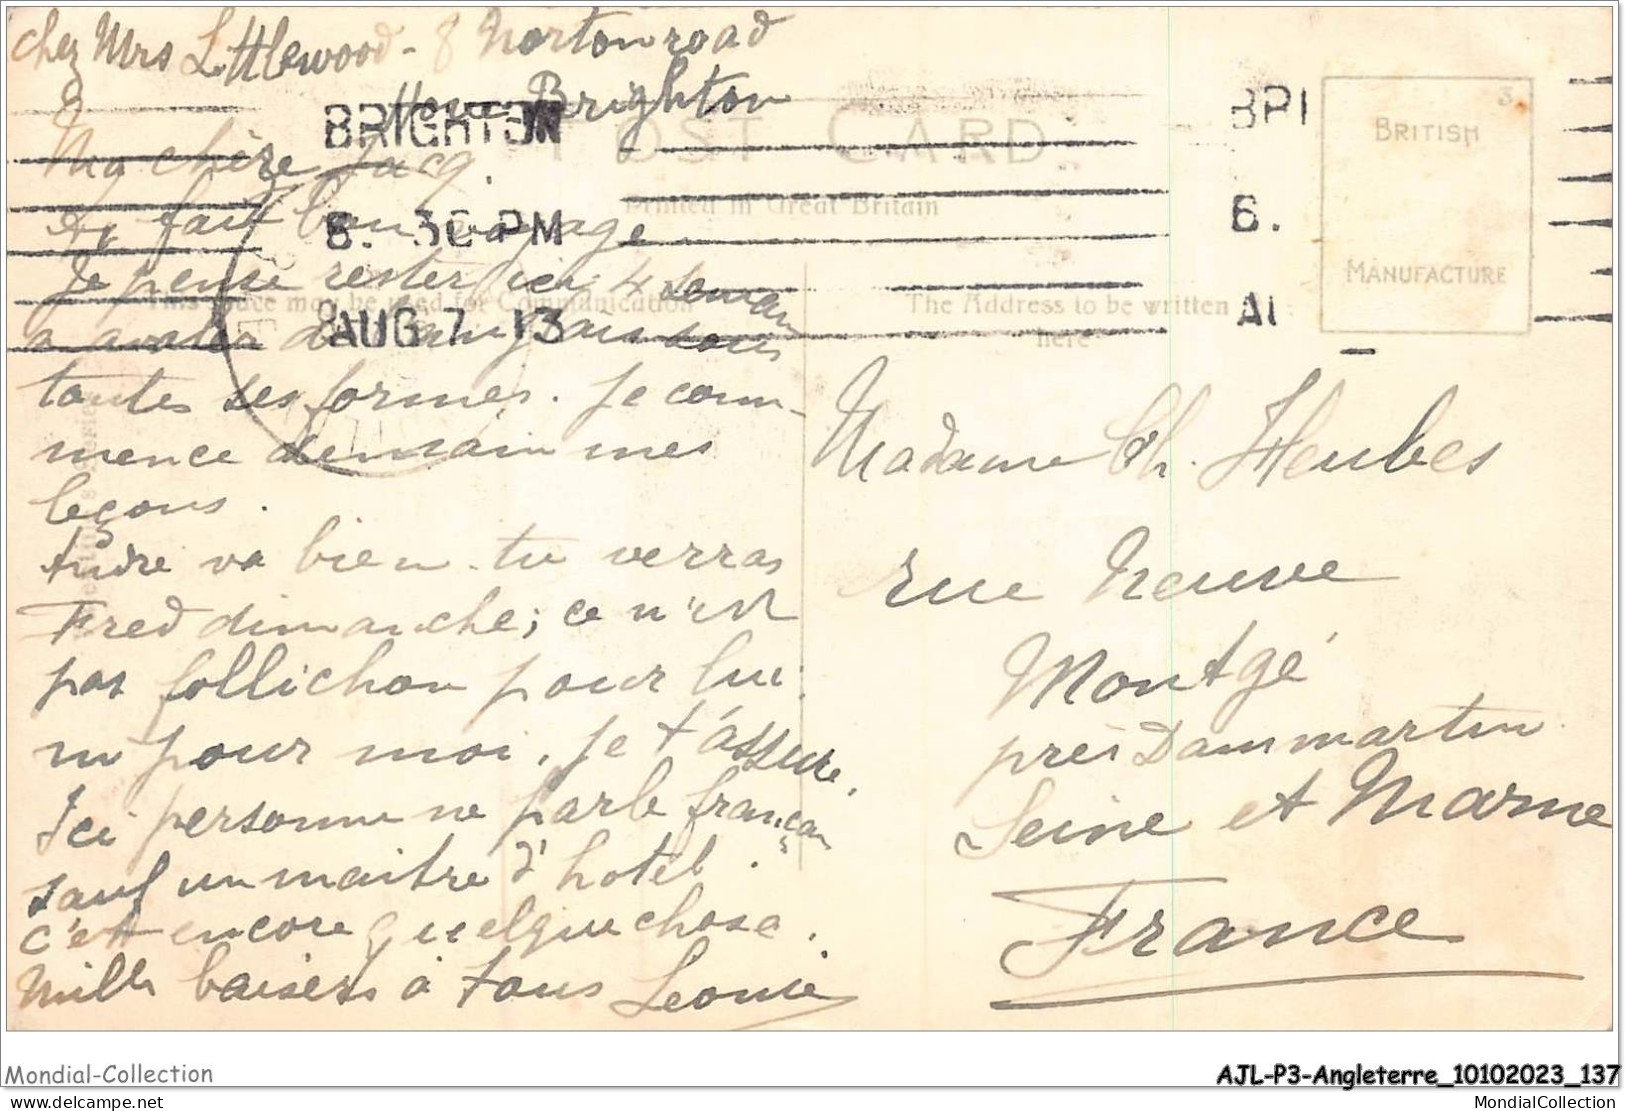 chez Mrs Littlewood - 8 Norton road
Hove Brighton
BRIGHTON
8. 30 PM
AUG 7 13
BRI
8.
AU
POST CARD
Printed in Great Britain
This space may be used for Communication
The Address to be written
here
BRITISH
MANUFACTURE
Ma chère Jacq.
fait bon voyage.
Je pense rester ici 4 semain
à avaler de l'anglais sous
toutes ses formes. Je com-
mence demain mes
leçons.
André va bien. tu verras
Fred dimanche; ce n'est
pas follichon pour lui
ni pour moi, je t'assure.
Ici personne ne parle français
sauf un maitre d'hotel.
c'est encore quelque chose.
Mille baisers à tous Leonie
Madame Ch. Heubes
rue Neuve
Montgé
près Dammartin
Seine et Marne
France
Mondial-Collection
AJL-P3-Angleterre_10102023_137
www.delcampe.net
MondialCollection